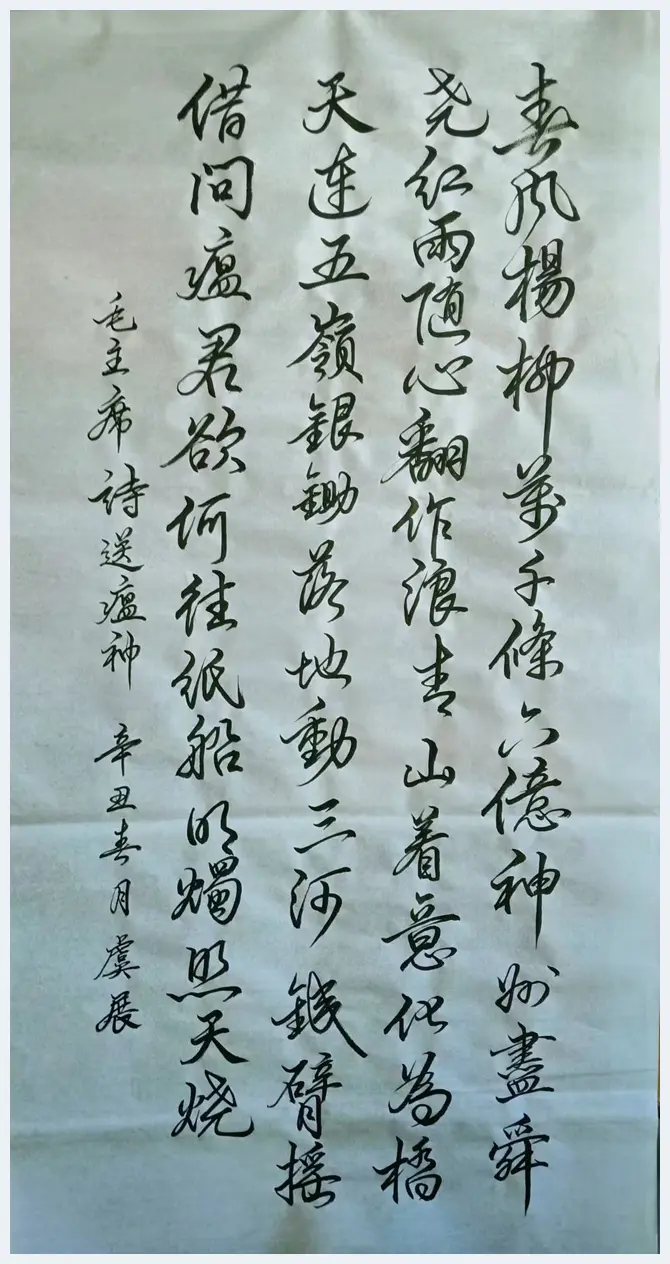 春风楊柳萬千條六億神州盡舜
尧红雨随心翻作浪青山着意化為橋
天连五嶺銀鋤落地動三河鐵臂摇
借问瘟君欲何往纸船明燭照天烧
毛主席詩送瘟神 辛丑春月虞展